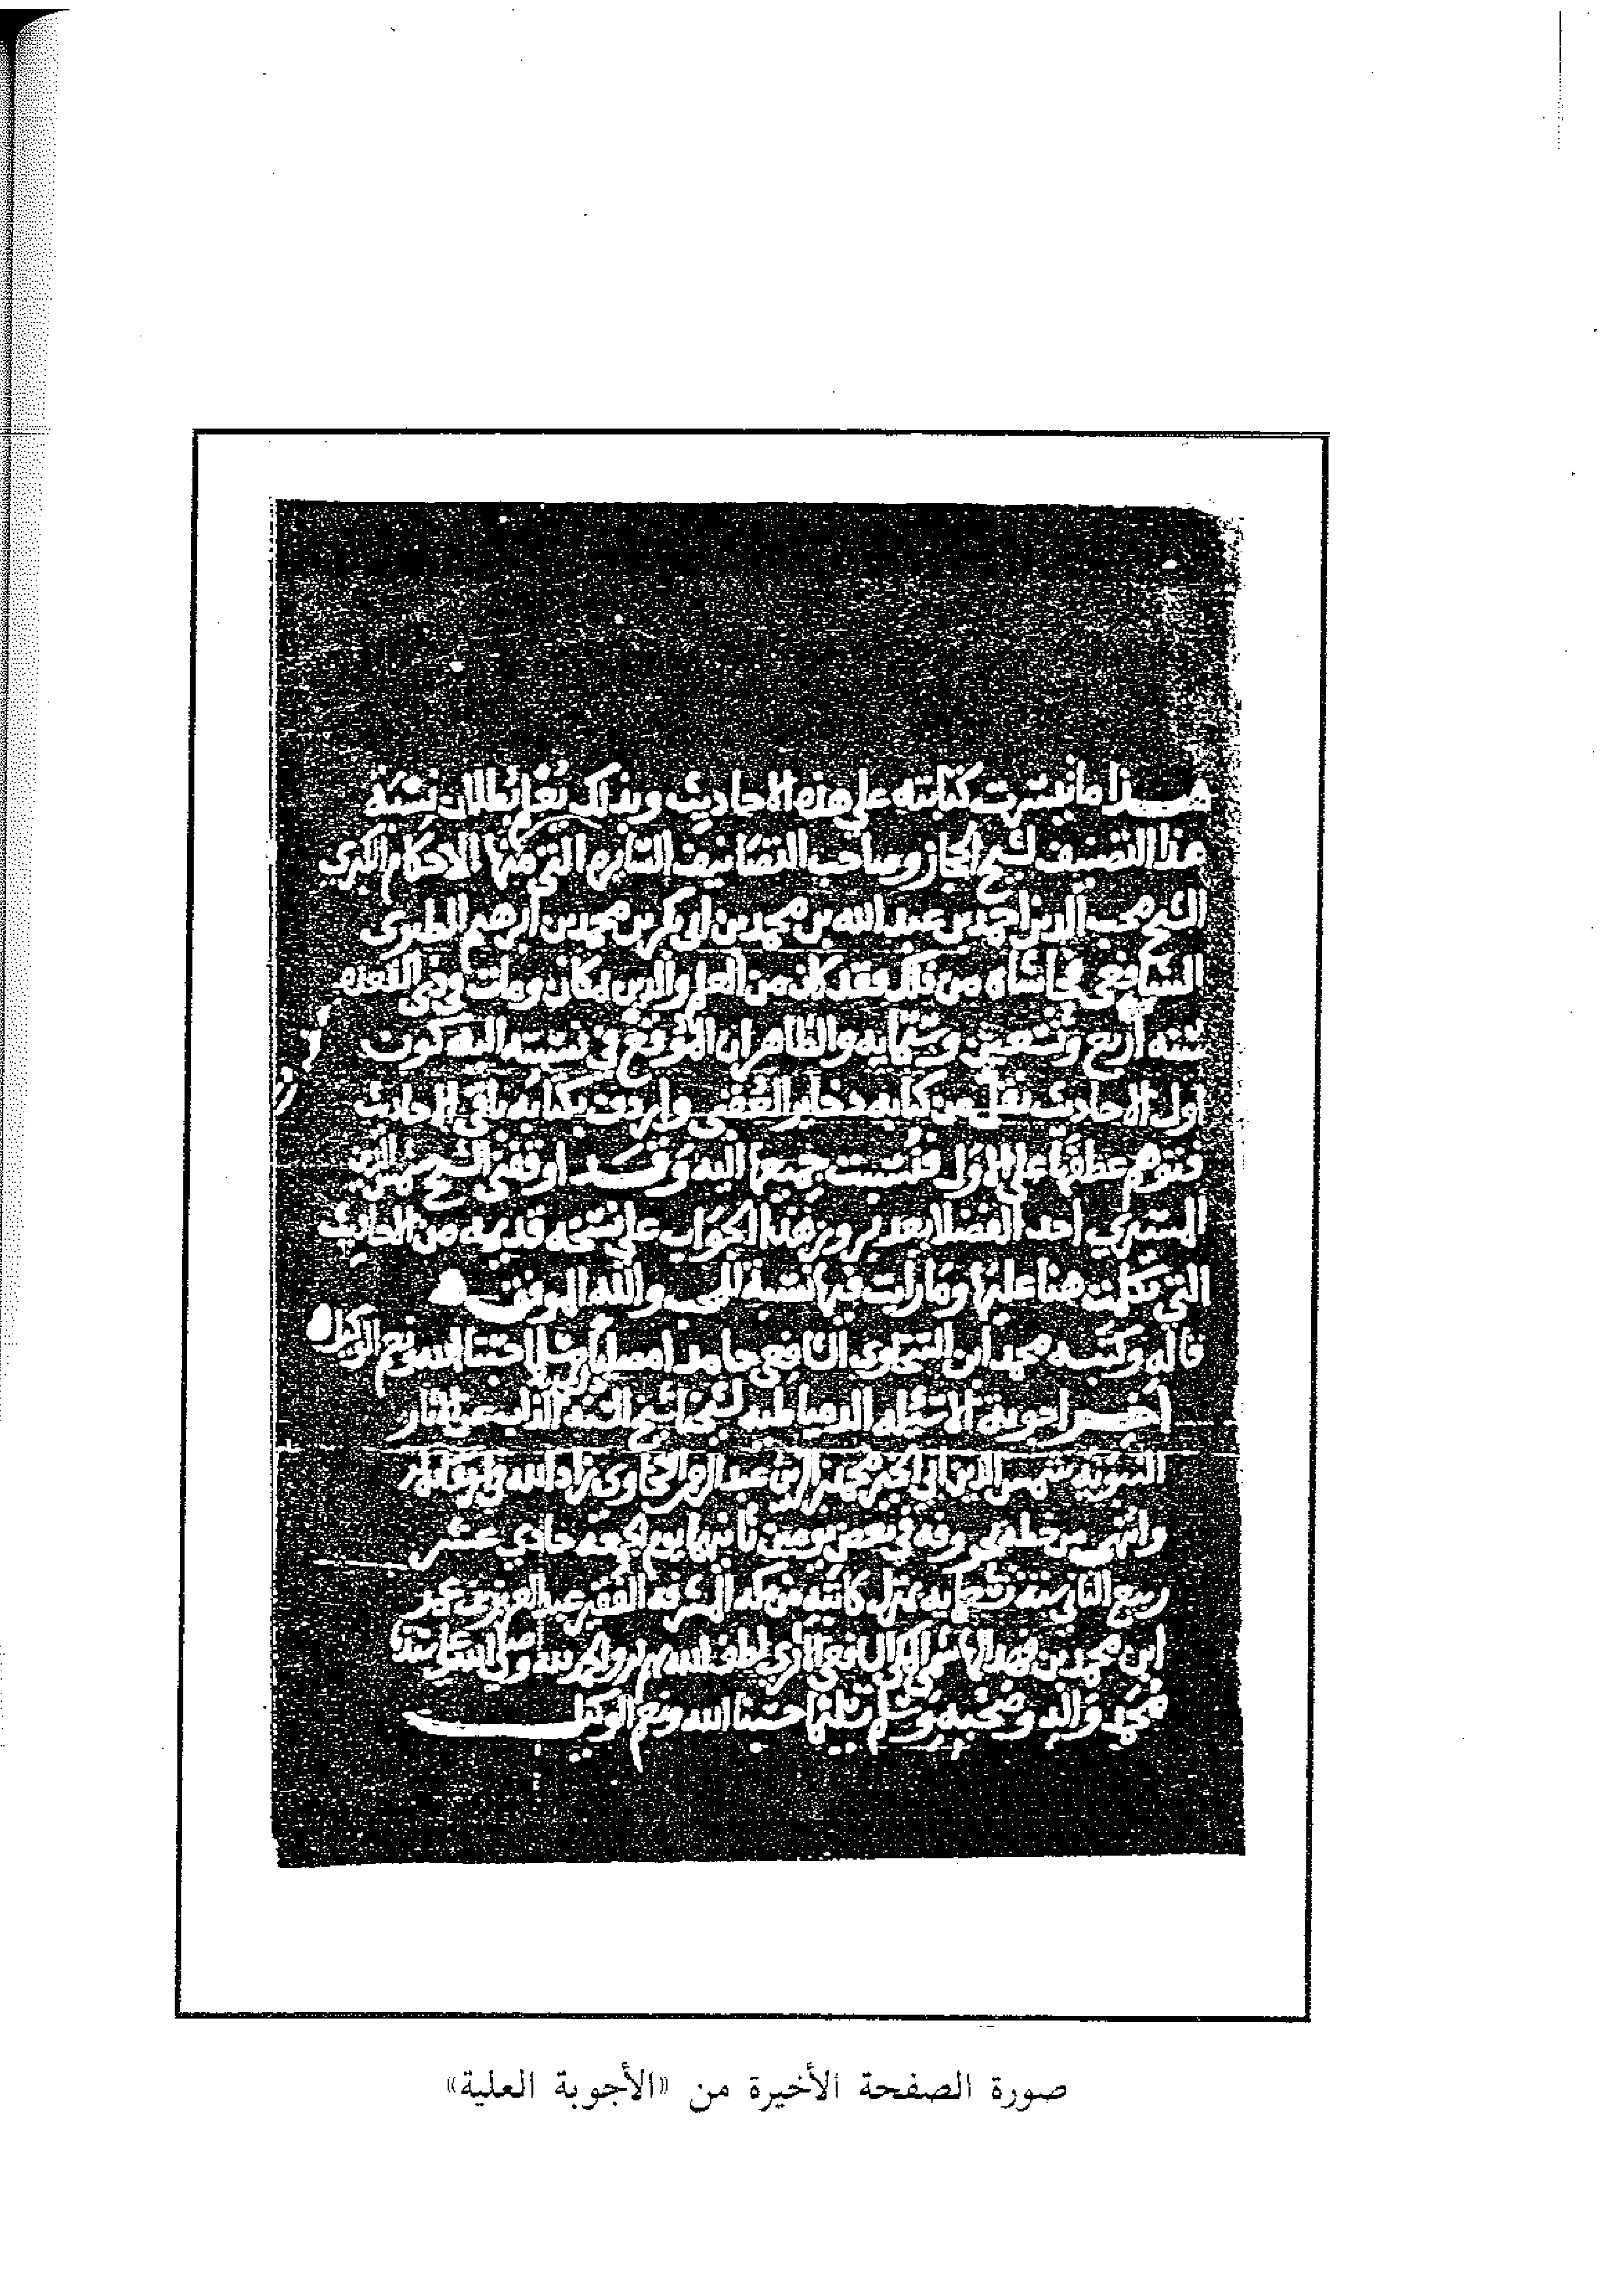 هذا ما تيسرت كتابته على هذه الاحاديث وبذلك يعلم بطلان نسبة
هذا التصنيف لشيخ الحجاز وصاحب التصانيف السايره التي منها الاحكام الكبرى
الشيخ محب الدين احمد بن عبد الله بن محمد بن ابي بكر بن محمد بن ابرهيم الطبري
الشافعي فحاشاه من ذلك فقد كان من العلم والدين بمكان ومات في ذي القعده
سنة اربع وتسعين وستمايه والظاهر ان الموقع في نسبته اليه كون
اول الاحاديث نقل من كتابه ذخاير العقبى واردف بكتابة باقي الاحاديث
فتوهم عطفها على الاول فنسبت جميعها اليه وقد اوقفني الشيخ الدين
احد الفضلا بعد بروز هذا الجواب على نسخه قديمه من الاحاديث
التي تكلمت هنا عليها وما رايت فيها نسبة للمحب والله الموفق
قاله وكتبه محمد ابن السخاوي الشافعي حامدا مصليا مسلما حسبنا الله ونعم الوكيل
اخر اجوبة الاسئله الدمياطيه لشيخنا شيخ السنه الذاب عن الاثار
النبويه شمس الدين ابي الخير محمد بن الزين عبد الرحمن السخاوي زاده الله
وانتهى من خطه في بعض يومين ثانيهما يوم الجمعه حادي عشر
ربيع الثاني سنة بمنزل كاتبه من مكه المشرفه الفقير عبد العزيز بن عمر
ابن محمد بن فهد الهاشمي المكي الشافعي الاثري لطف الله بهم والحمد لله وصلى الله على سيدنا
محمد واله وصحبه وسلم تسليما حسبنا الله ونعم الوكيل
صورة الصفحة الأخيرة من «الأجوبة العلية»